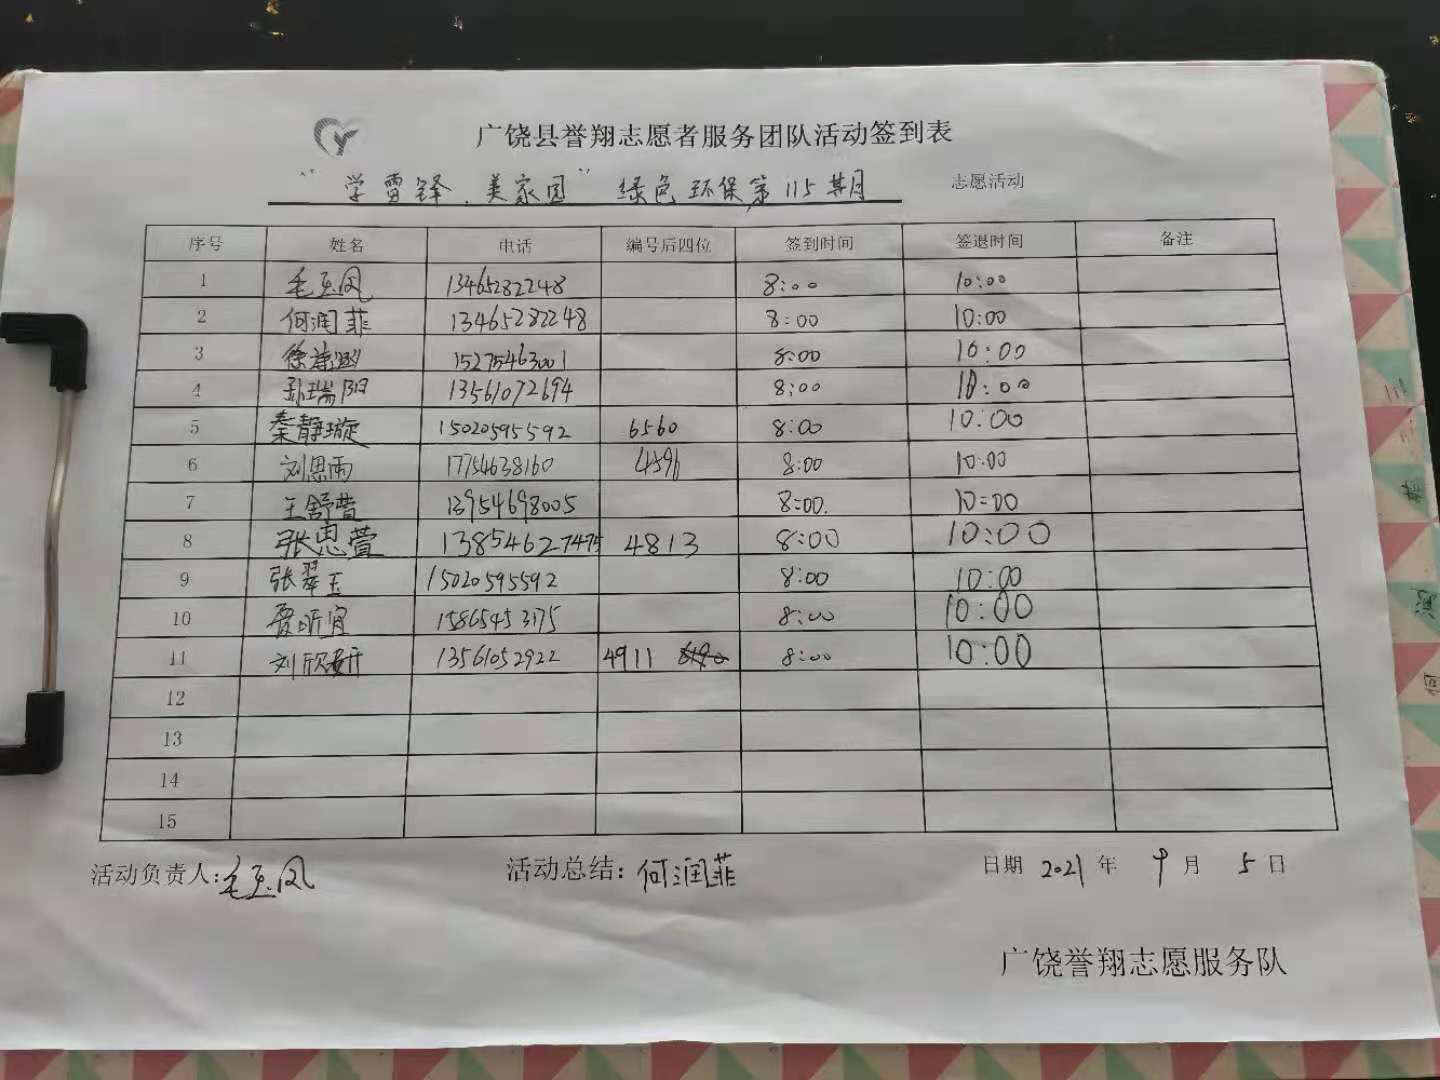 广饶县誉翔志愿者服务团队活动签到表
“学雷锋、美家园” 绿色环保第115期 志愿活动
序号 姓名 电话 编号后四位 签到时间 签退时间 备注
1 毛玉凤 13465282248 8:00 10:00
2 何润菲 13465282248 8:00 10:00
3 徐 15275463001 8:00 10:00
4 孙瑞阳 13561072694 8:00 10:00
5 秦静璇 15020595592 6560 8:00 10:00
6 刘思雨 17754638160 4596 8:00 10:00
7 王舒萱 13954698005 8:00 10:00
8 张思萱 13854627475 4813 8:00 10:00
9 张翠玉 15020595592 8:00 10:00
10 贾昕宜 15865453175 8:00 10:00
11 刘欣妍 13561052922 4911 8:00 10:00
12
13
14
15
活动负责人:毛玉凤 活动总结:何润菲 日期 2021 年 9 月 5 日
广饶誉翔志愿服务队